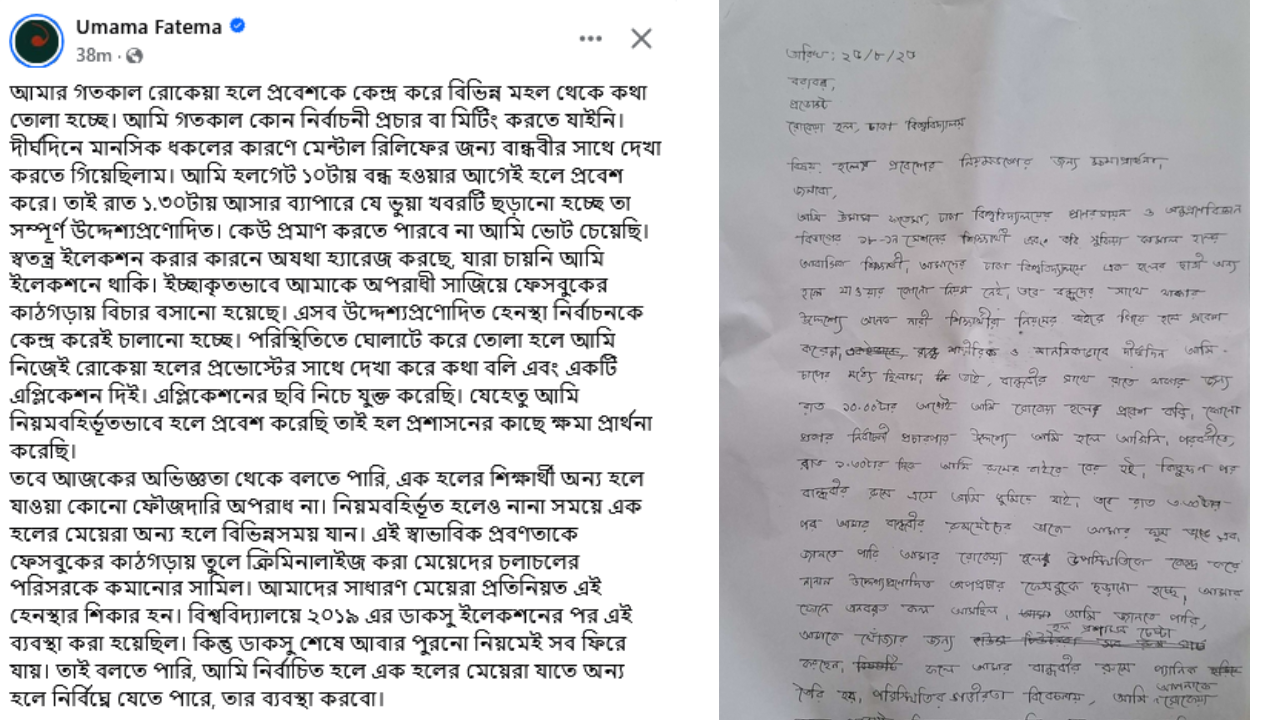 Umama Fatema
38m
আমার গতকাল রোকেয়া হলে প্রবেশকে কেন্দ্র করে বিভিন্ন মহল থেকে কথা
তোলা হচ্ছে। আমি গতকাল কোন নির্বাচনী প্রচার বা মিটিং করতে যাইনি।
দীর্ঘদিনে মানসিক ধকলের কারণে মেন্টাল রিলিফের জন্য বান্ধবীর সাথে দেখা
করতে গিয়েছিলাম। আমি হলগেট ১০টায় বন্ধ হওয়ার আগেই হলে প্রবেশ
করে। তাই রাত ১.৩০টায় আসার ব্যাপারে যে ভুয়া খবরটি ছড়ানো হচ্ছে তা
সম্পূর্ণ উদ্দেশ্যপ্রণোদিত। কেউ প্রমাণ করতে পারবে না আমি ভোট চেয়েছি।
স্বতন্ত্র ইলেকশন করার কারনে অযথা হ্যারেজ করছে, যারা চায়নি আমি
ইলেকশনে থাকি। ইচ্ছাকৃতভাবে আমাকে অপরাধী সাজিয়ে ফেসবুকের
কাঠগড়ায় বিচার বসানো হয়েছে। এসব উদ্দেশ্যপ্রণোদিত হেনস্থা নির্বাচনকে
কেন্দ্র করেই চালানো হচ্ছে। পরিস্থিতিতে ঘোলাটে করে তোলা হলে আমি
নিজেই রোকেয়া হলের প্রভোস্টের সাথে দেখা করে কথা বলি এবং একটি
এপ্লিকেশন দিই। এপ্লিকেশনের ছবি নিচে যুক্ত করেছি। যেহেতু আমি
নিয়মবহির্ভূতভাবে হলে প্রবেশ করেছি তাই হল প্রশাসনের কাছে ক্ষমা প্রার্থনা
করেছি।
তবে আজকের অভিজ্ঞতা থেকে বলতে পারি, এক হলের শিক্ষার্থী অন্য হলে
যাওয়া কোনো ফৌজদারি অপরাধ না। নিয়মবহির্ভূত হলেও নানা সময়ে এক
হলের মেয়েরা অন্য হলে বিভিন্নসময় যান। এই স্বাভাবিক প্রবণতাকে
ফেসবুকের কাঠগড়ায় তুলে ক্রিমিনালাইজ করা মেয়েদের চলাচলের
পরিসরকে কমানোর সামিল। আমাদের সাধারণ মেয়েরা প্রতিনিয়ত এই
হেনস্থার শিকার হন। বিশ্ববিদ্যালয়ে ২০১৯ এর ডাকসু ইলেকশনের পর এই
ব্যবস্থা করা হয়েছিল। কিন্তু ডাকসু শেষে আবার পুরনো নিয়মেই সব ফিরে
যায়। তাই বলতে পারি, আমি নির্বাচিত হলে এক হলের মেয়েরা যাতে অন্য
হলে নির্বিঘ্নে যেতে পারে, তার ব্যবস্থা করবো।
তারিখ: ২৫/৮/২৫
বরাবর,
প্রভোস্ট
রোকেয়া হল, ঢাকা বিশ্ববিদ্যালয়
বিষয়: হলে প্রবেশের জন্য ক্ষমাপ্রার্থনা।
জনাবা,
আমি উমামা ফাতেমা, ঢাকা বিশ্ববিদ্যালয়ের প্রাণরসায়ন ও অনুপ্রাণবিজ্ঞান
বিভাগের সেশনের শিক্ষার্থী এবং কবি সুফিয়া কামাল হলের
আবাসিক শিক্ষার্থী। আমাদের ঢাকা বিশ্ববিদ্যালয়ে এক হলের ছাত্রী অন্য
হলে যাওয়ার কোনো নিয়ম নেই। তবে বন্ধুদের সাথে থাকার
উদ্দেশ্যে অনেক নারী শিক্ষার্থীরা নিয়মের বাইরে গিয়ে হলে প্রবেশ
করেন। শারীরিক ও মানসিকভাবে দীর্ঘদিন আমি
চাপের মধ্যে ছিলাম। তাই, বান্ধবীর সাথে রাতে থাকার জন্য
রাত ১০.০০টার আগেই আমি রোকেয়া হলে প্রবেশ করি। কোনো
প্রকার নির্বাচনী প্রচারণার উদ্দেশ্যে আমি হলে আসিনি। পরবর্তীতে,
রাত ১.৩০টার দিকে আমি রুমের বাইরে বের হই। কিছুক্ষণ পর
বান্ধবীর রুমে এসে আমি ঘুমিয়ে যাই। তবে রাত
পর আমার বান্ধবীর রুমমেটদের আমার ঘুম
জানতে পারি আমার রোকেয়া হলে উপস্থিতিকে কেন্দ্র করে
নানান উদ্দেশ্যপ্রণোদিত অপপ্রচার ফেসবুকে ছড়ানো হচ্ছে। আমার
ফোনে অনবরত কল আসছিল। আমি জানতে পারি,
আমাকে খোঁজার জন্য হল প্রশাসন চেষ্টা
করছেন। ফলে আমার বান্ধবীর রুমে প্যানিক
তৈরি হয়। পরিস্থিতির গভীরতা বিবেচনায়, আমি আপনাকে রোকেয়া